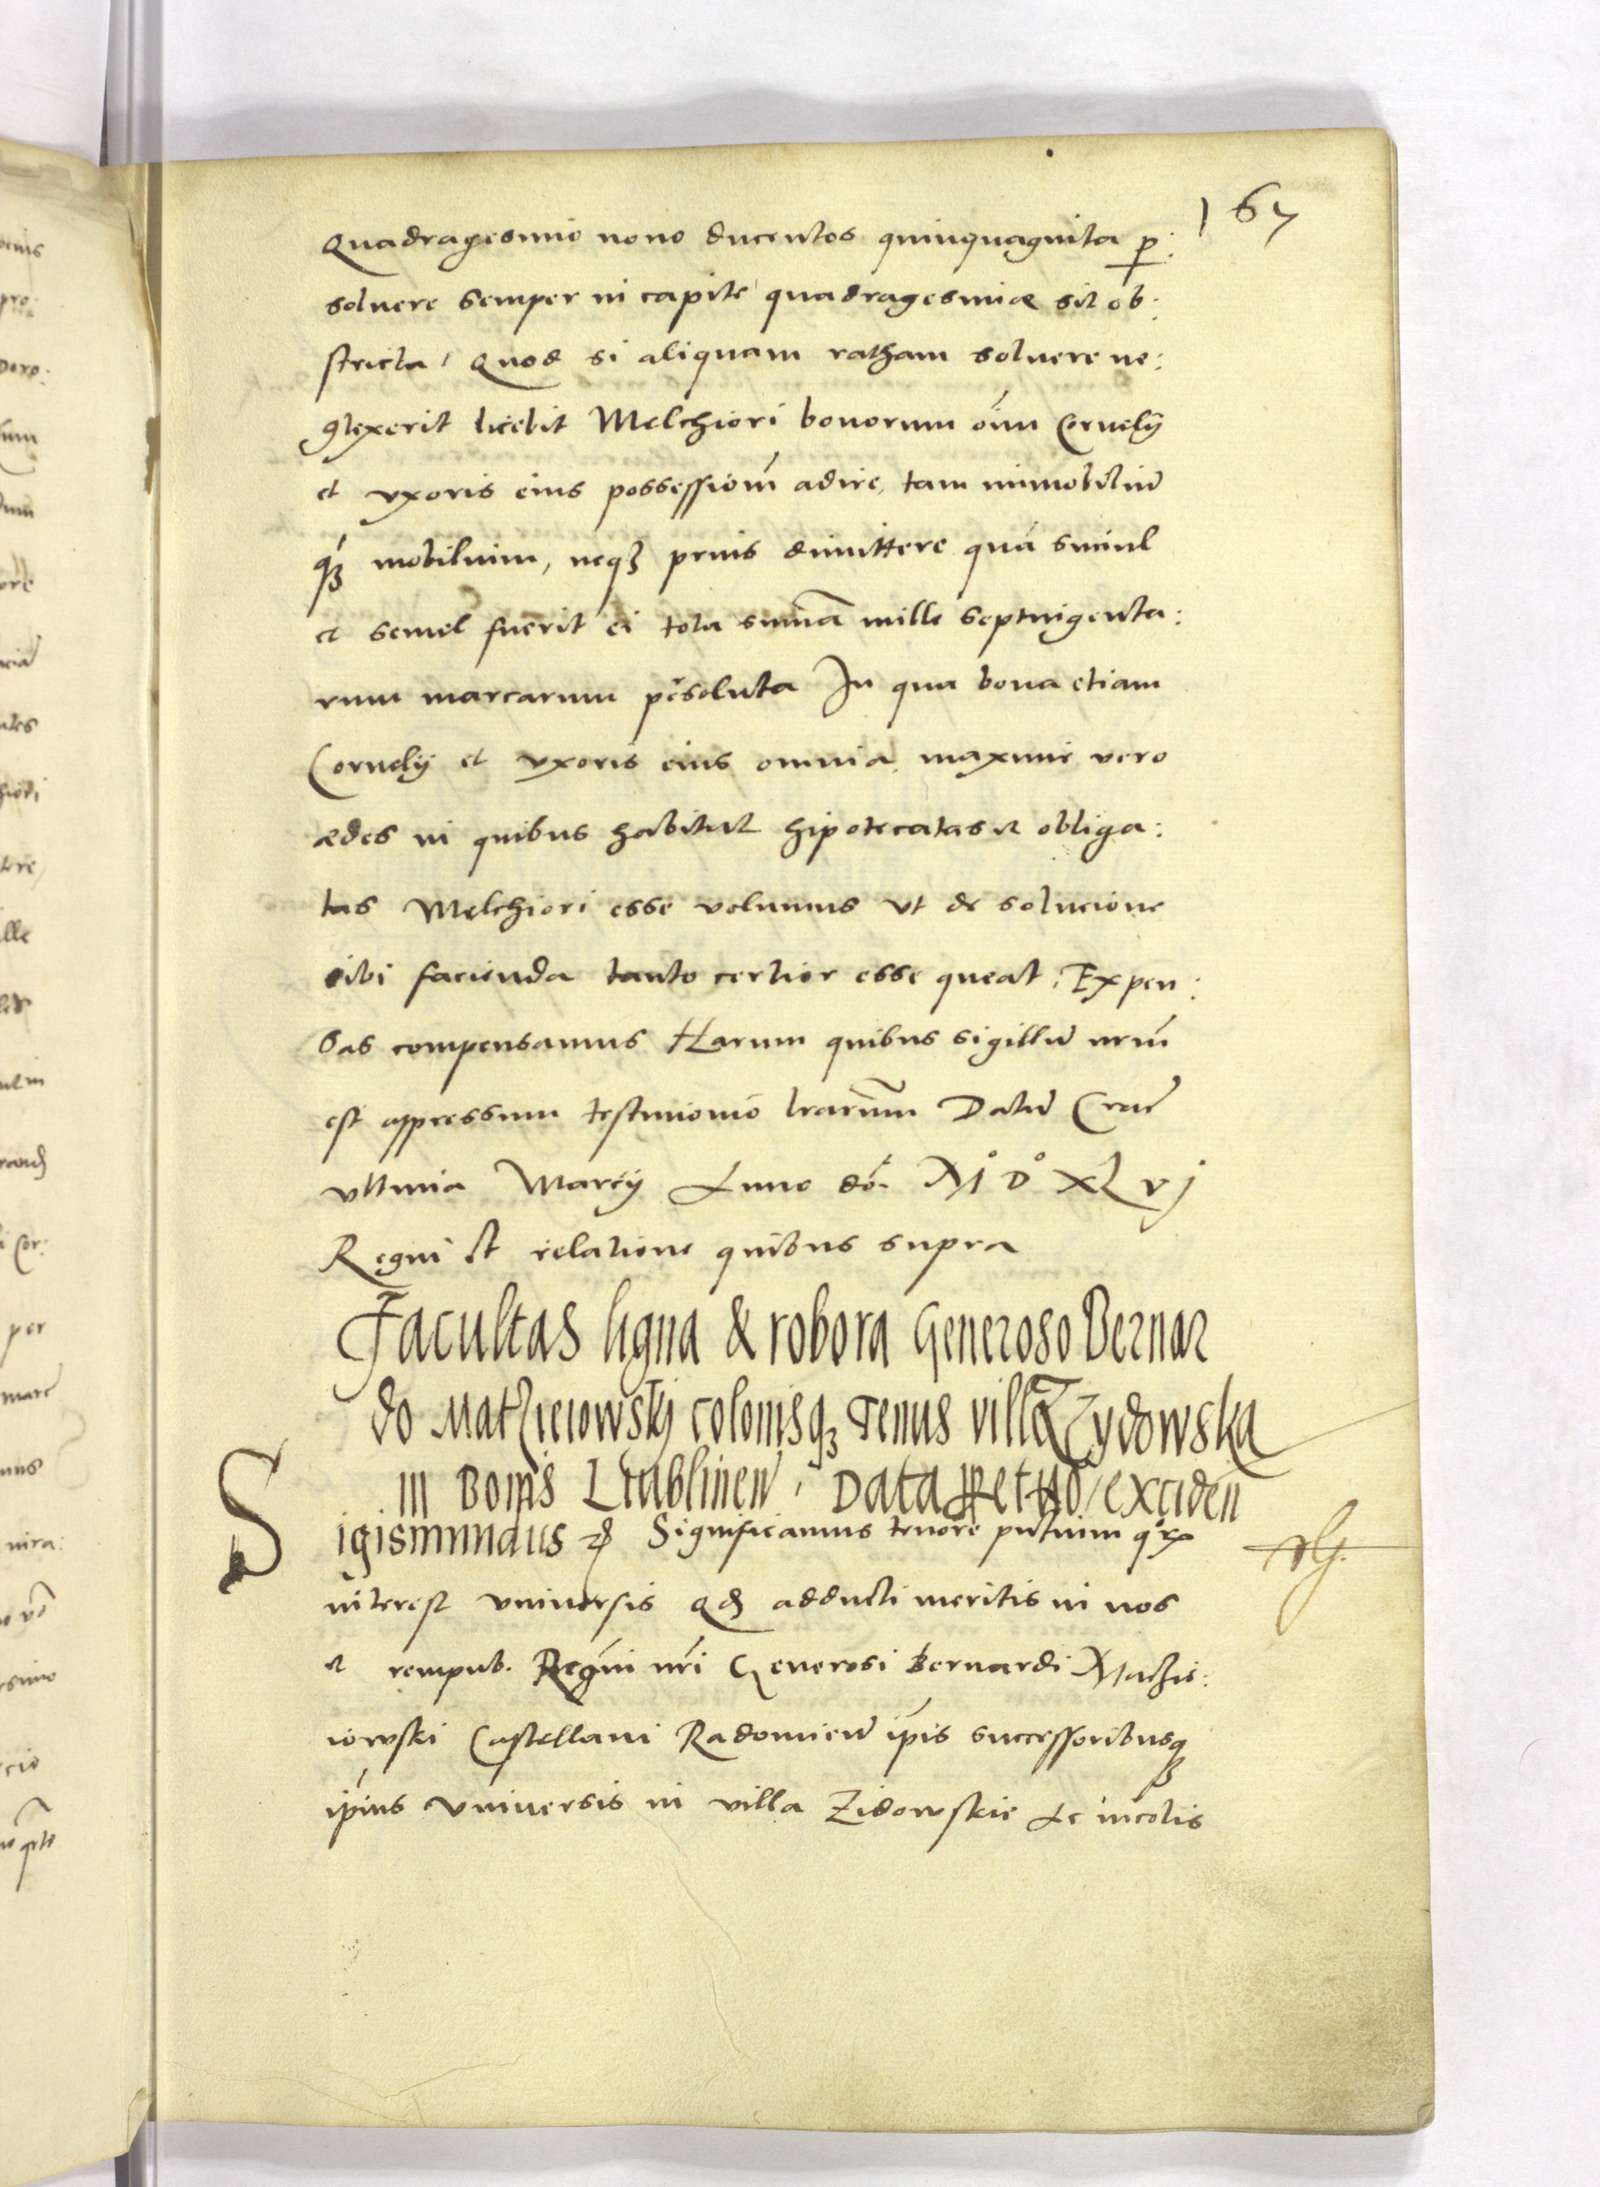 167
Quadragesimo nono ducentos quinquaginta per:
soluere semper in capite quadragesimæ sit ob:
stricta, Quod si aliquam ratham soluere ne:
glexerit licebit Melchiori bonorum oim Cornelij
et vxoris eius possessionem adire, tam immobilium
qz mobilium, neqz prius dimittere quam simul
et semel fuerit ei tota summa mille septuigenta:
rum marcarum persoluta In qua bona etiam
Cornelij et vxoris eius omnia, maxime vero
ædes in quibus habitat hipotecatas et obliga:
tas Melchiori esse volumus vt de solucione
sibi facienda tanto certior esse queat, Expen:
sas compensamus Harum quibus sigillum nrm
est appressum testimonio lrarum Datum Crac
vltima Marcij Anno do. M° D° XLvj
Regni et relatione quibus supra
Facultas ligna & robora Generoso Bernar
do Matzieiowskj colonisqz tenus villæ Zydowska
in Bonis Ltublinen, Data perpetuo excidendi
Sigismundus etc Significamus tenore pntium quor
interest vniuersis Qd adducti meritis in nos
et rempub. Regni nri Generosi Bernardi Maczie:
iowski Castellani Radomien ipis successoribusqz
ipius vniuersis in villa Zidowskie Ac incolis